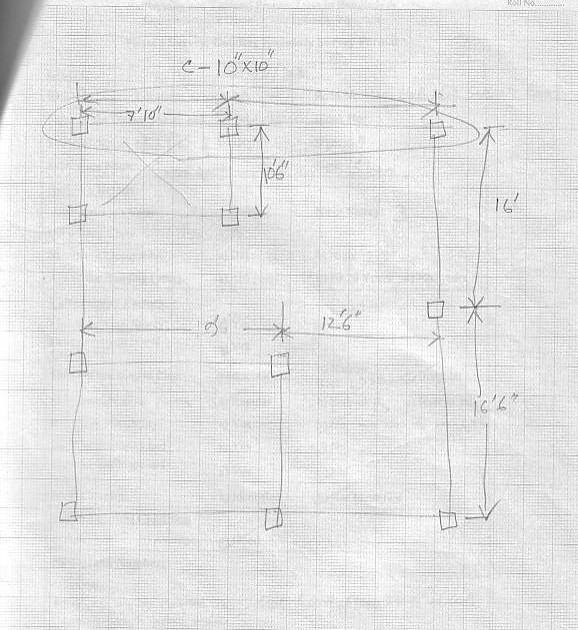 Roll No.............
C-10"X10"
7'10"
10'6"
16'
12'6"
16'6"